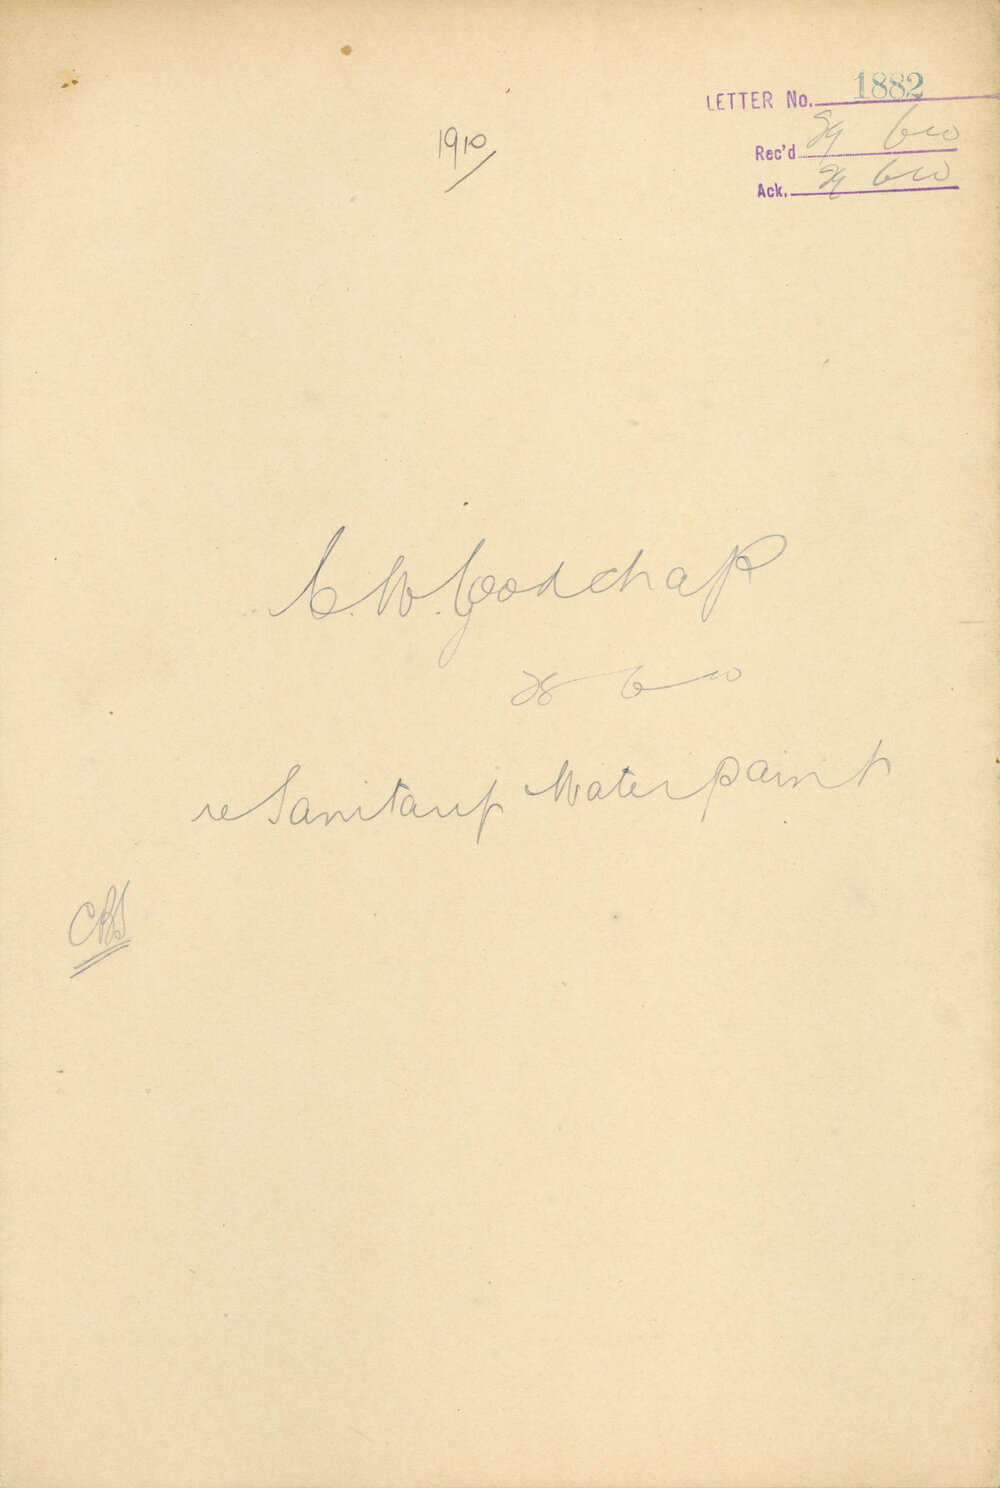 LETTER No. 1882
1910
Rec'd 29 6 10
Ack. 29 6 10
C. W. Goodchap
28 6 10
re Sanitary Water paint